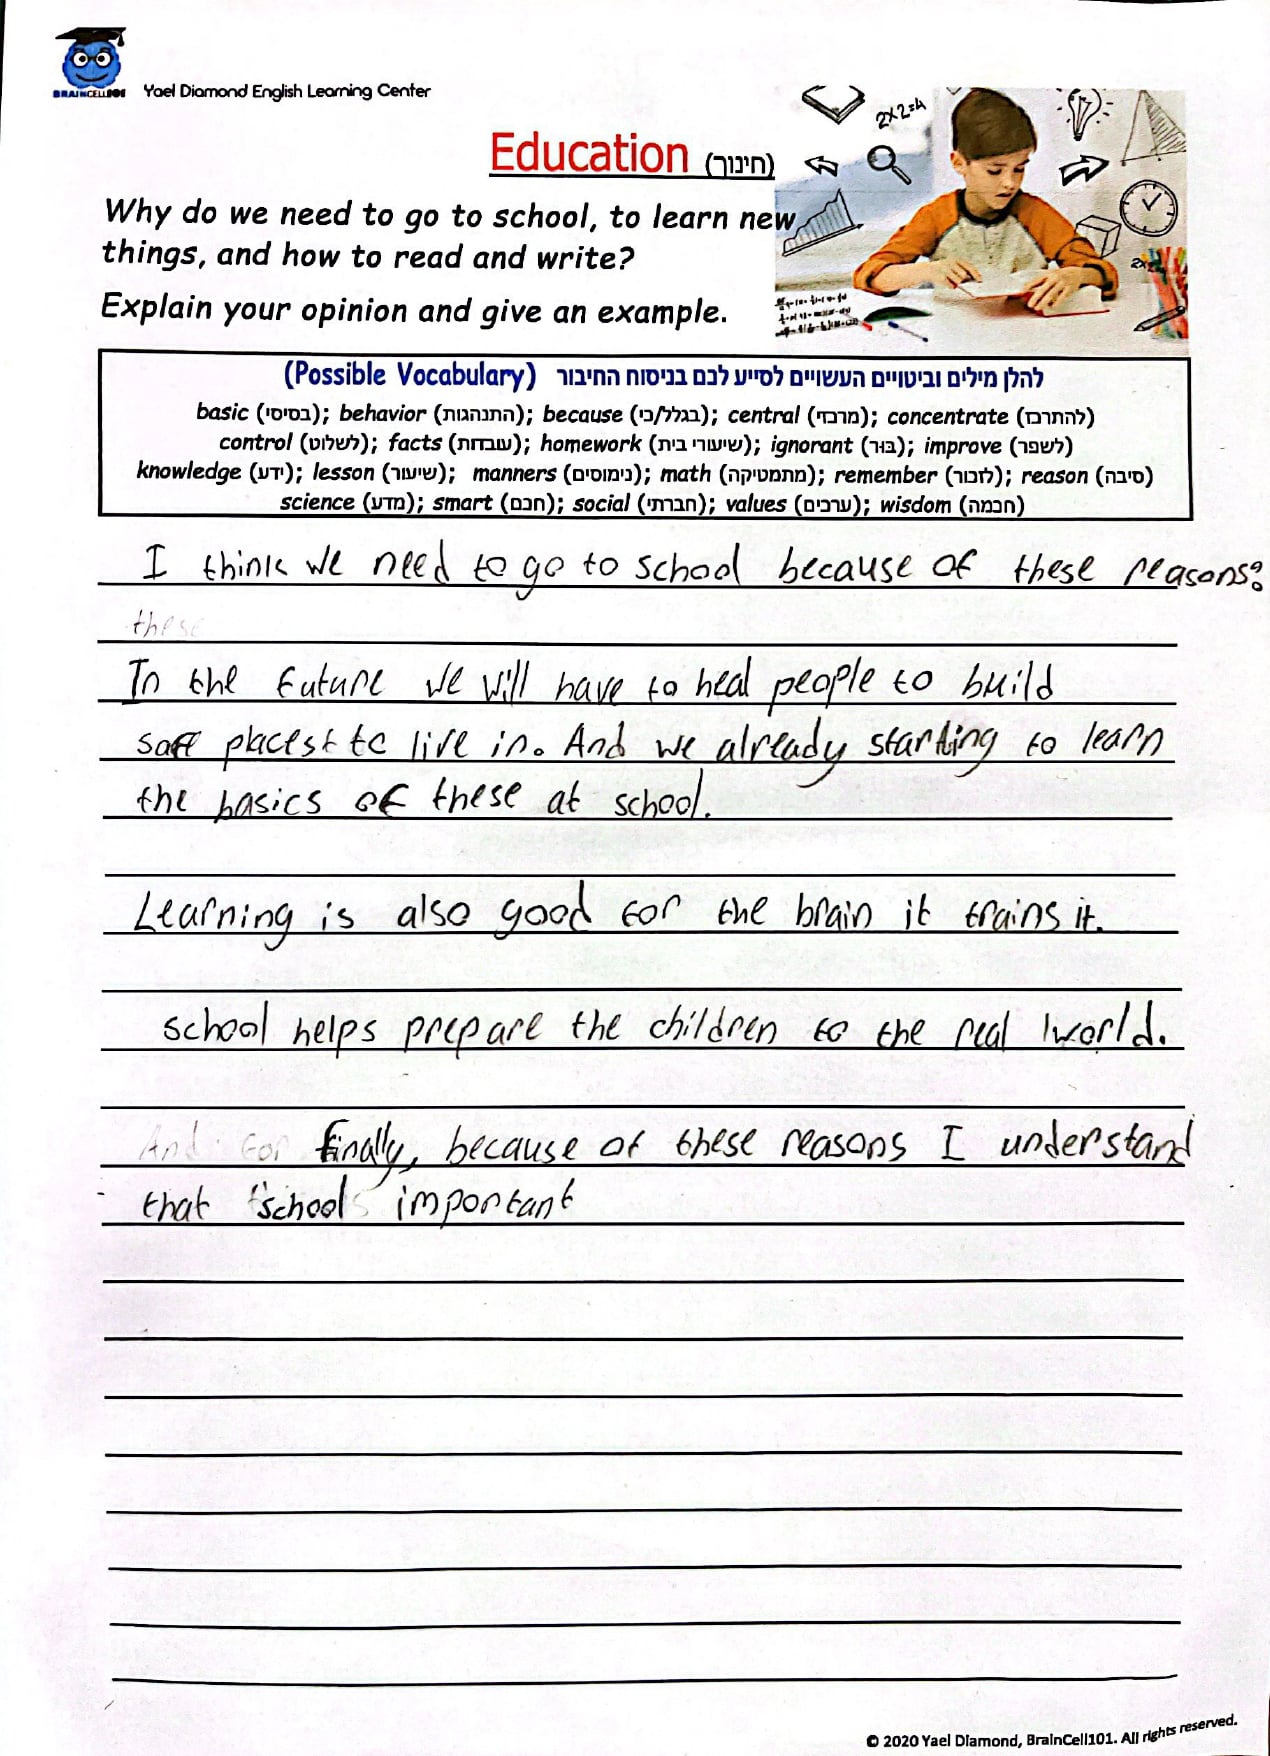 BRAINCELL101
Yael Diamond English Learning Center
2x2=4
Education (חינוך)
Why do we need to go to school, to learn new
things, and how to read and write?
Explain your opinion and give an example.
להלן מילים וביטויים העשויים לסייע לכם בניסוח החיבור (Possible Vocabulary)
basic (בסיסי); behavior (התנהגות); because (בגלל/כי); central (מרכזי); concentrate (להתרכז)
control (לשלוט); facts (עובדות); homework (שיעורי בית); ignorant (בּוּר); improve (לשפר)
knowledge (ידע); lesson (שיעור); manners (נימוסים); math (מתמטיקה); remember (לזכור); reason (סיבה)
science (מדע); smart (חכם); social (חברתי); values (ערכים); wisdom (חכמה)
I think we need to go to school because of these reasons:
these
In the future we will have to heal people to build
safe places to live in. And we already starting to learn
the basics of these at school.
Learning is also good for the brain it trains it.
school helps prepare the children to the real world.
And for finally, because of these reasons I understand
that school important
© 2020 Yael Diamond, BrainCell101. All rights reserved.